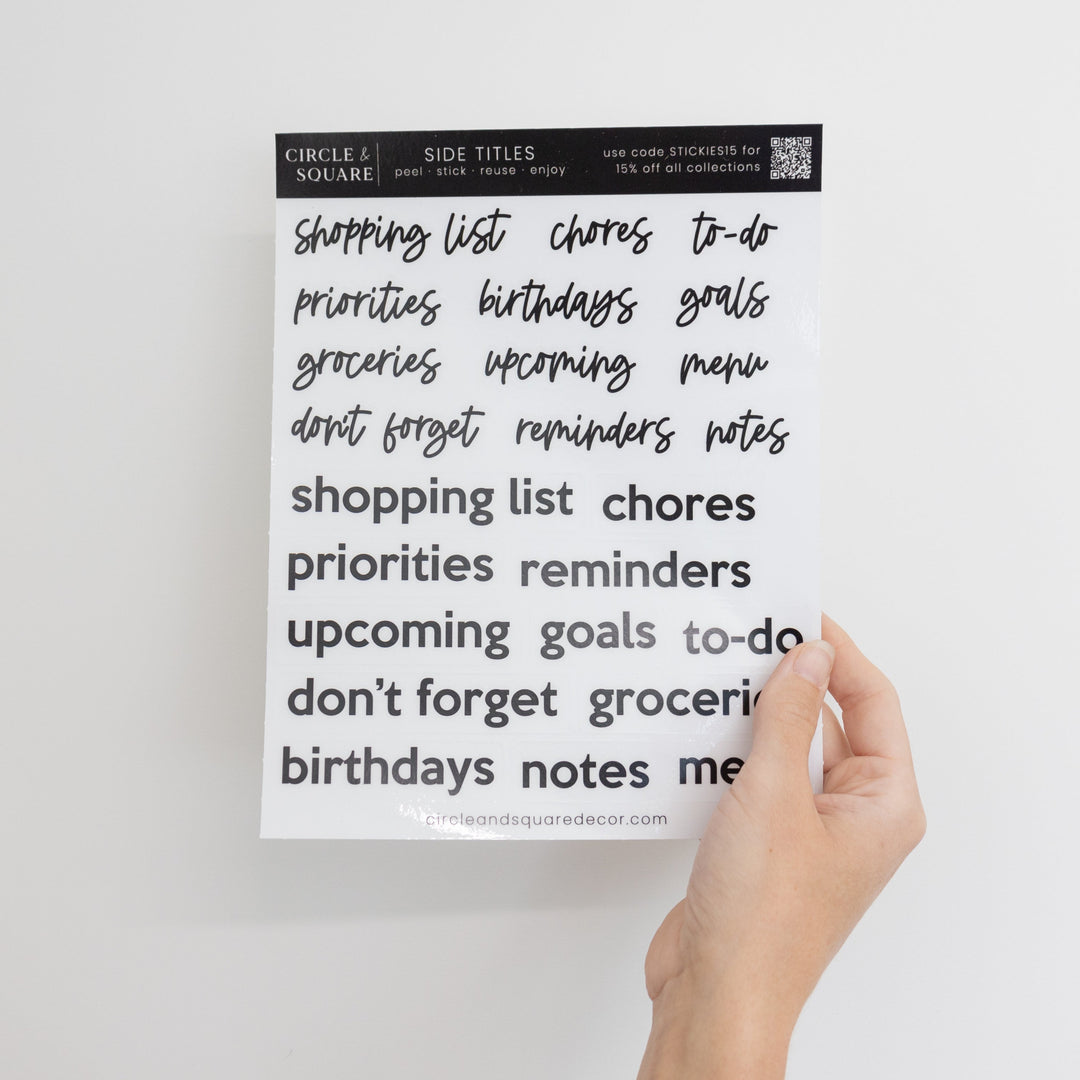 CIRCLE &
SQUARE
SIDE TITLES
peel · stick · reuse · enjoy
use code STICKIES15 for
15% off all collections
shopping list chores to-do
priorities birthdays goals
groceries upcoming menu
don't forget reminders notes
shopping list chores
priorities reminders
upcoming goals to-do
don't forget
birthdays notes
circleandsquaredecor.com